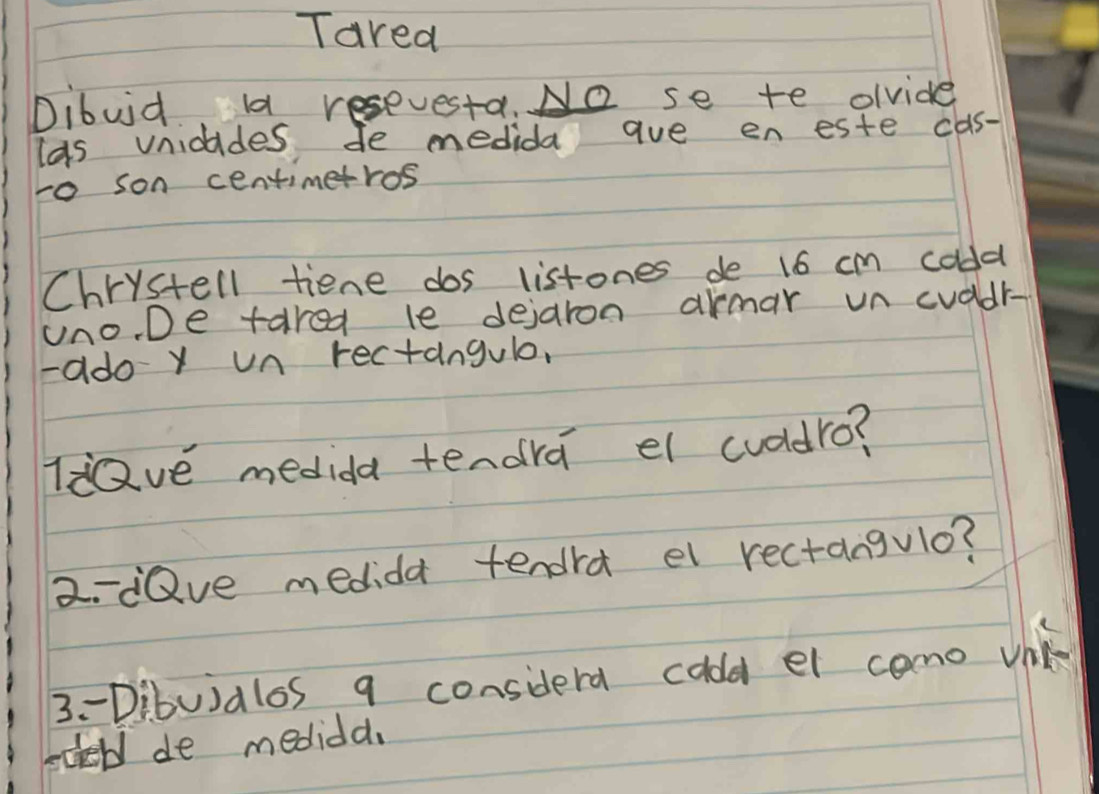 Tarea
Dibuja la respuesta. NO se te olvide
las unidades de medida que en este cas-
-o son centimetros
Chrystell tiene dos listones de 16 cm cada
uno. De tarea le dejaron armar un cuadr-
-ado y un rectangulo.
1¿Qué medida tendrá el cuadro?
2.-¿Que medida tendra el rectangulo?
3.-Dibujalos q considera cada el como uni-
-dad de medida.